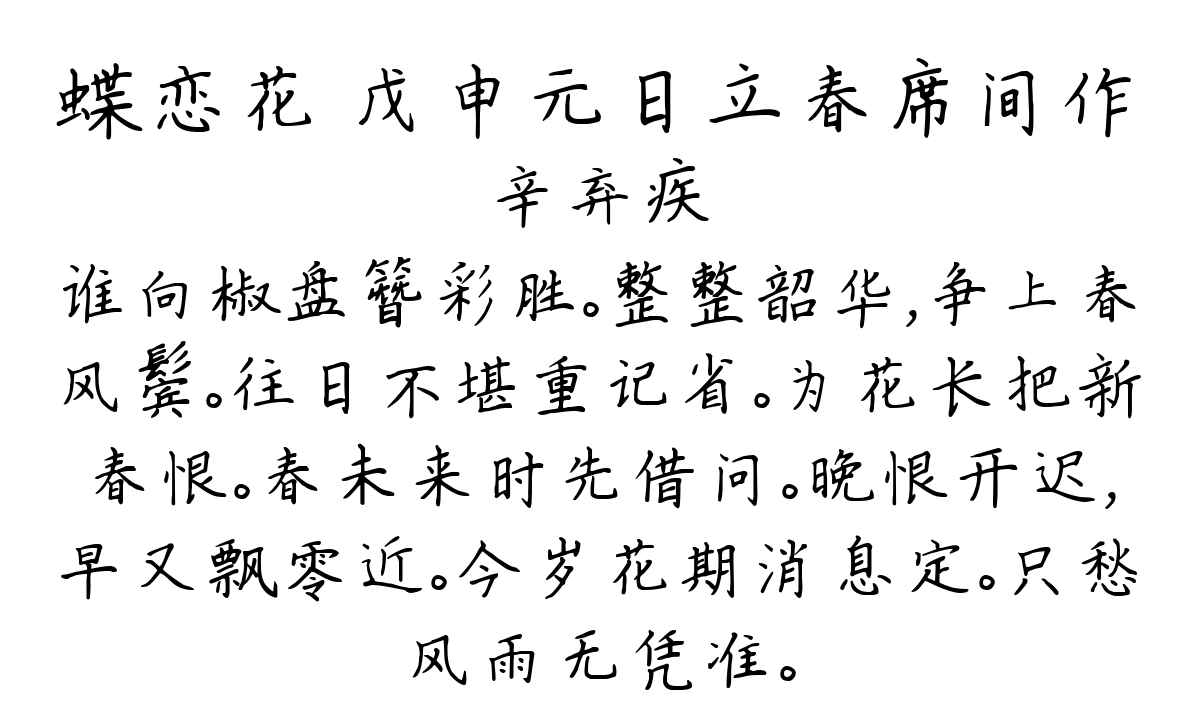 蝶恋花 戊申元日立春席间作
辛弃疾
谁向椒盘簪彩胜。整整韶华,争上春
风鬓。往日不堪重记省。为花长把新
春恨。春未来时先借问。晚恨开迟,
早又飘零近。今岁花期消息定。只愁
风雨无凭准。